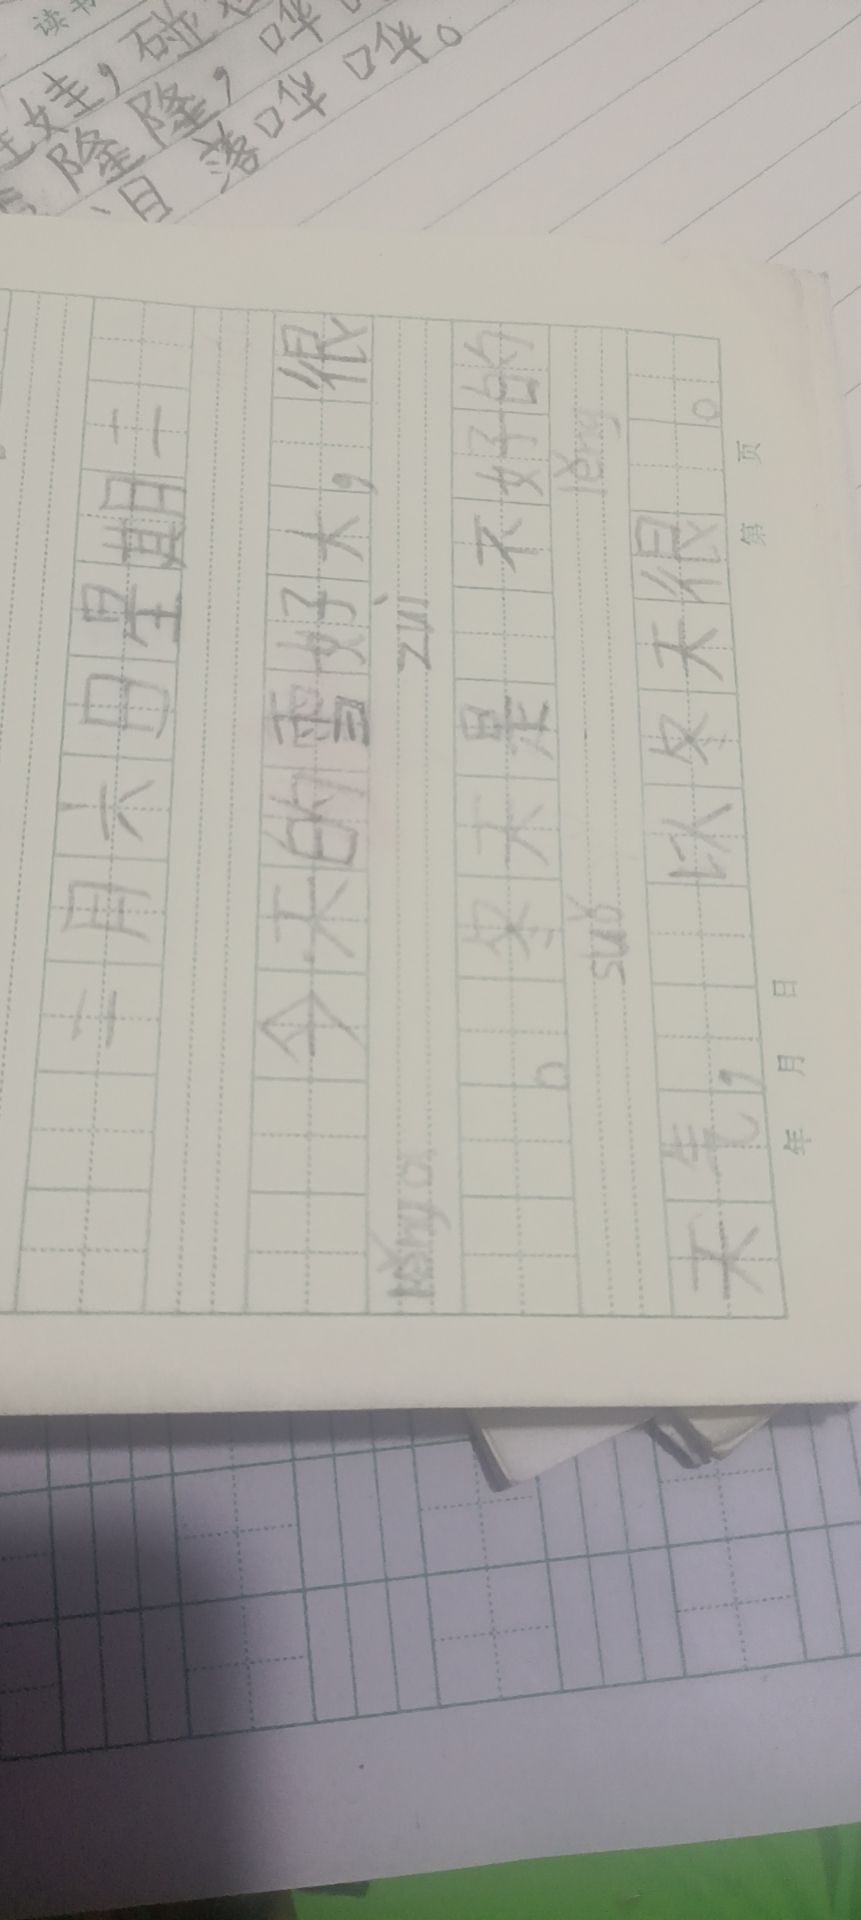 读书
娃，碰
隆隆，哗
泪落哗哗。
二月六日星期二
今天的雪好大， 很
kěng ai zuì
。冬天是 不好的
suǒ lěng
天气， 以冬天很 。
年 月 日 第 页